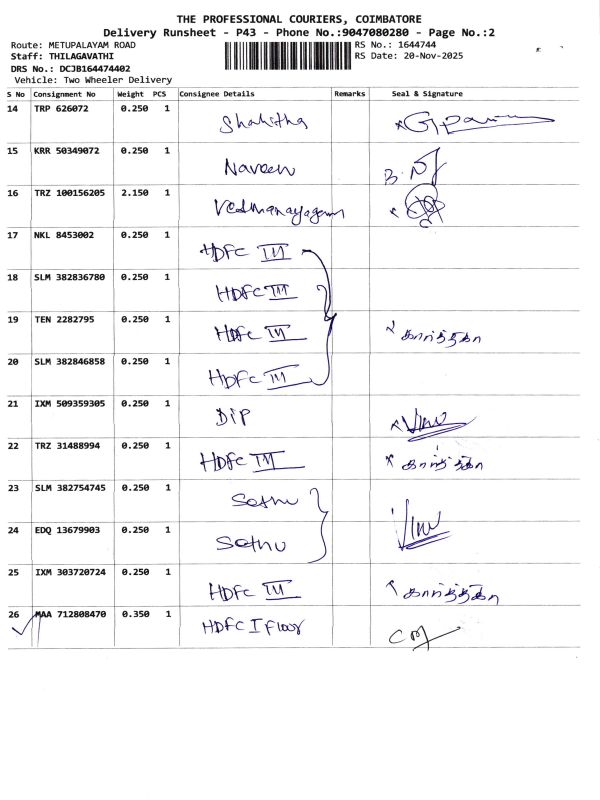 THE PROFESSIONAL COURIERS, COIMBATORE
Delivery Runsheet - P43 - Phone No.:9047080280 - Page No.:2
Route: METUPALAYAM ROAD RS No.: 1644744
Staff: THILAGAVATHI RS Date: 20-Nov-2025
DRS No.: DCJB164474402
Vehicle: Two Wheeler Delivery
S No Consignment No Weight PCS Consignee Details Remarks Seal & Signature
14 TRP 626072 0.250 1 Shahitha
15 KRR 50349072 0.250 1 Naveen
16 TRZ 100156205 2.150 1 Vedhanayagam
17 NKL 8453002 0.250 1 HDFC III
18 SLM 382836780 0.250 1 HDFC III
19 TEN 2282795 0.250 1 HDFC III கார்த்திகா
20 SLM 382846858 0.250 1 HDFC III
21 IXM 509359305 0.250 1 DIP
22 TRZ 31488994 0.250 1 HDFC III கார்த்திகா
23 SLM 382754745 0.250 1 Sethu
24 EDQ 13679903 0.250 1 Sethu
25 IXM 303720724 0.250 1 HDFC III கார்த்திகா
26 MAA 712808470 0.350 1 HDFC I Floor